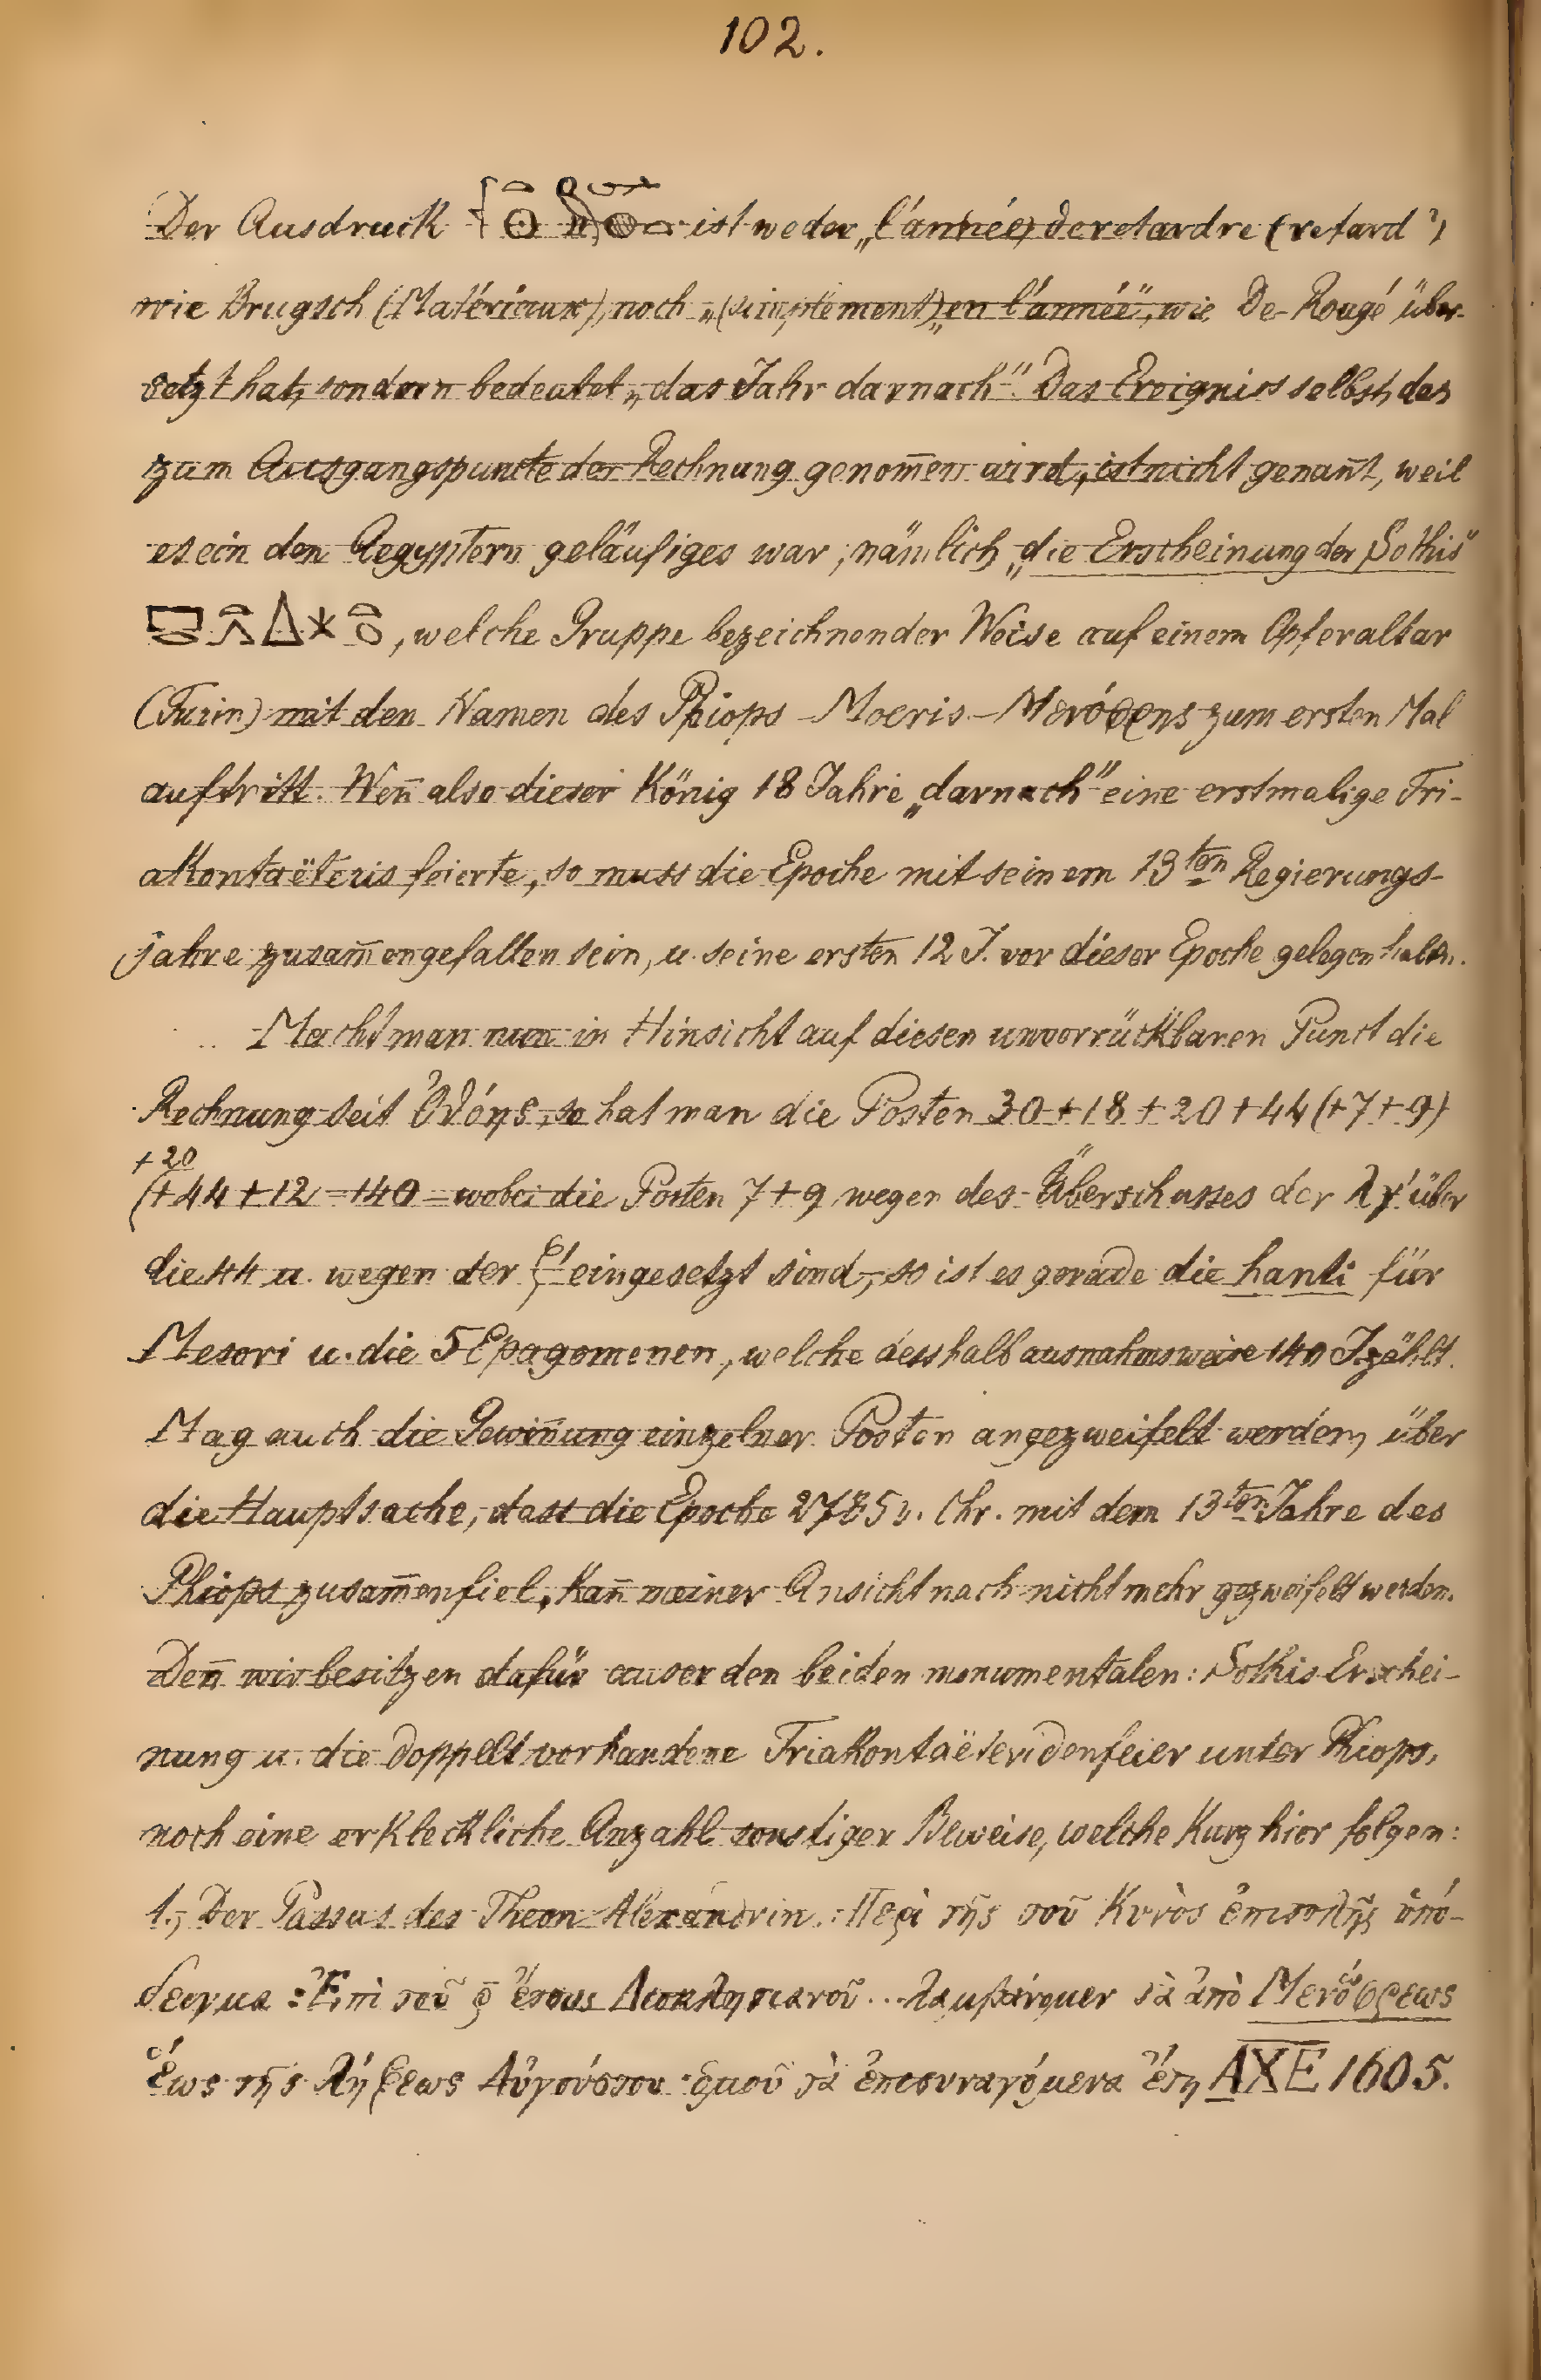 102.
Der Ausdruck ist weder „l'année) de retardre (retard?)
wie Brugsch (Matériaux), noch „(simplement) „en l'année", wie De-Rougé über-
setzt hat, sondern bedeutet „das Jahr darnach". Das Ereigniss selbst, das
zum Ausgangspuncte der Rechnung genom̄en wird, ist nicht genan̄t, weil
es ein den Aegyptern geläufiges war, nämlich „die Erscheinung der Sothis"
, welche Gruppe bezeichnender Weise auf einem Opferaltar
(Turin) mit den Namen des Phiops-Moeris- zum ersten Mal
auftritt. Wen̄ also dieser König 18 Jahre „darnach" eine erstmalige Tri-
akontaëteris feierte, so muss die Epoche mit seinem 13ten Regierungs-
jahre zusam̄engefallen sein, u. seine ersten 12 J. vor dieser Epoche gelegen haben.
Macht man nun in Hinsicht auf diesen unverrückbaren Punct die
Rechnung seit so hat man die Posten 30+18+20+44(+7+9)
+20
(+44+12=140 – wobei die Posten 7+9 wegen des Überschusses der λγ' über
die 44 u. wegen der eingesetzt sind, – so ist es gerade die hanti für
Mesori u. die 5 Epagomenen, welche desshalb ausnahmsweise 140 J. zählt.
Mag auch die Gewin̄ung einzelner Posten angezweifelt werden, über
die Hauptsache, dass die Epoche 2785 v. Chr. mit dem 13ten Jahre des
Phiops zusam̄enfiel, kan̄ meiner Ansicht nach nicht mehr gezweifelt werden.
Den̄ wir besitzen dafür auser den beiden monumentalen: Sothis-Erschei-
nung u. die doppelt vorhandene Triakontaëteridenfeier unter Phiops,
noch eine erkleckliche Anzahl sonstiger Beweise, welche kurz hier folgen:
1., Der Passus des Theon Alexandrin.: Περὶ τῆς τοῦ Κυνὸς ἐπιτολῆς ὑπό-
δειγμα: Ἐπὶ τοῦ ρ̄ ἔτους Διοκλητιανοῦ... λαμβάνομεν τὰ ἀπὸ Μενόφρεως
ἕως τῆς λήξεως Αὐγούστου· ὁμοῦ τὰ ἐπισυναγόμενα ἔτη ΑΧΕ 1605.